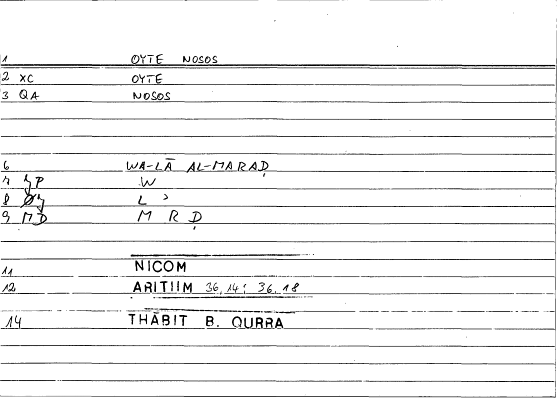 1 OYTE NOSOS
2 XC OYTE
3 QA NOSOS
6 WA-LĀ AL-MARAḌ
7 P W
8 L ʾ
9 MD M R Ḍ
11 NICOM
12 ARITIIM 36,14; 36,18
14 THĀBIT B. QURRA